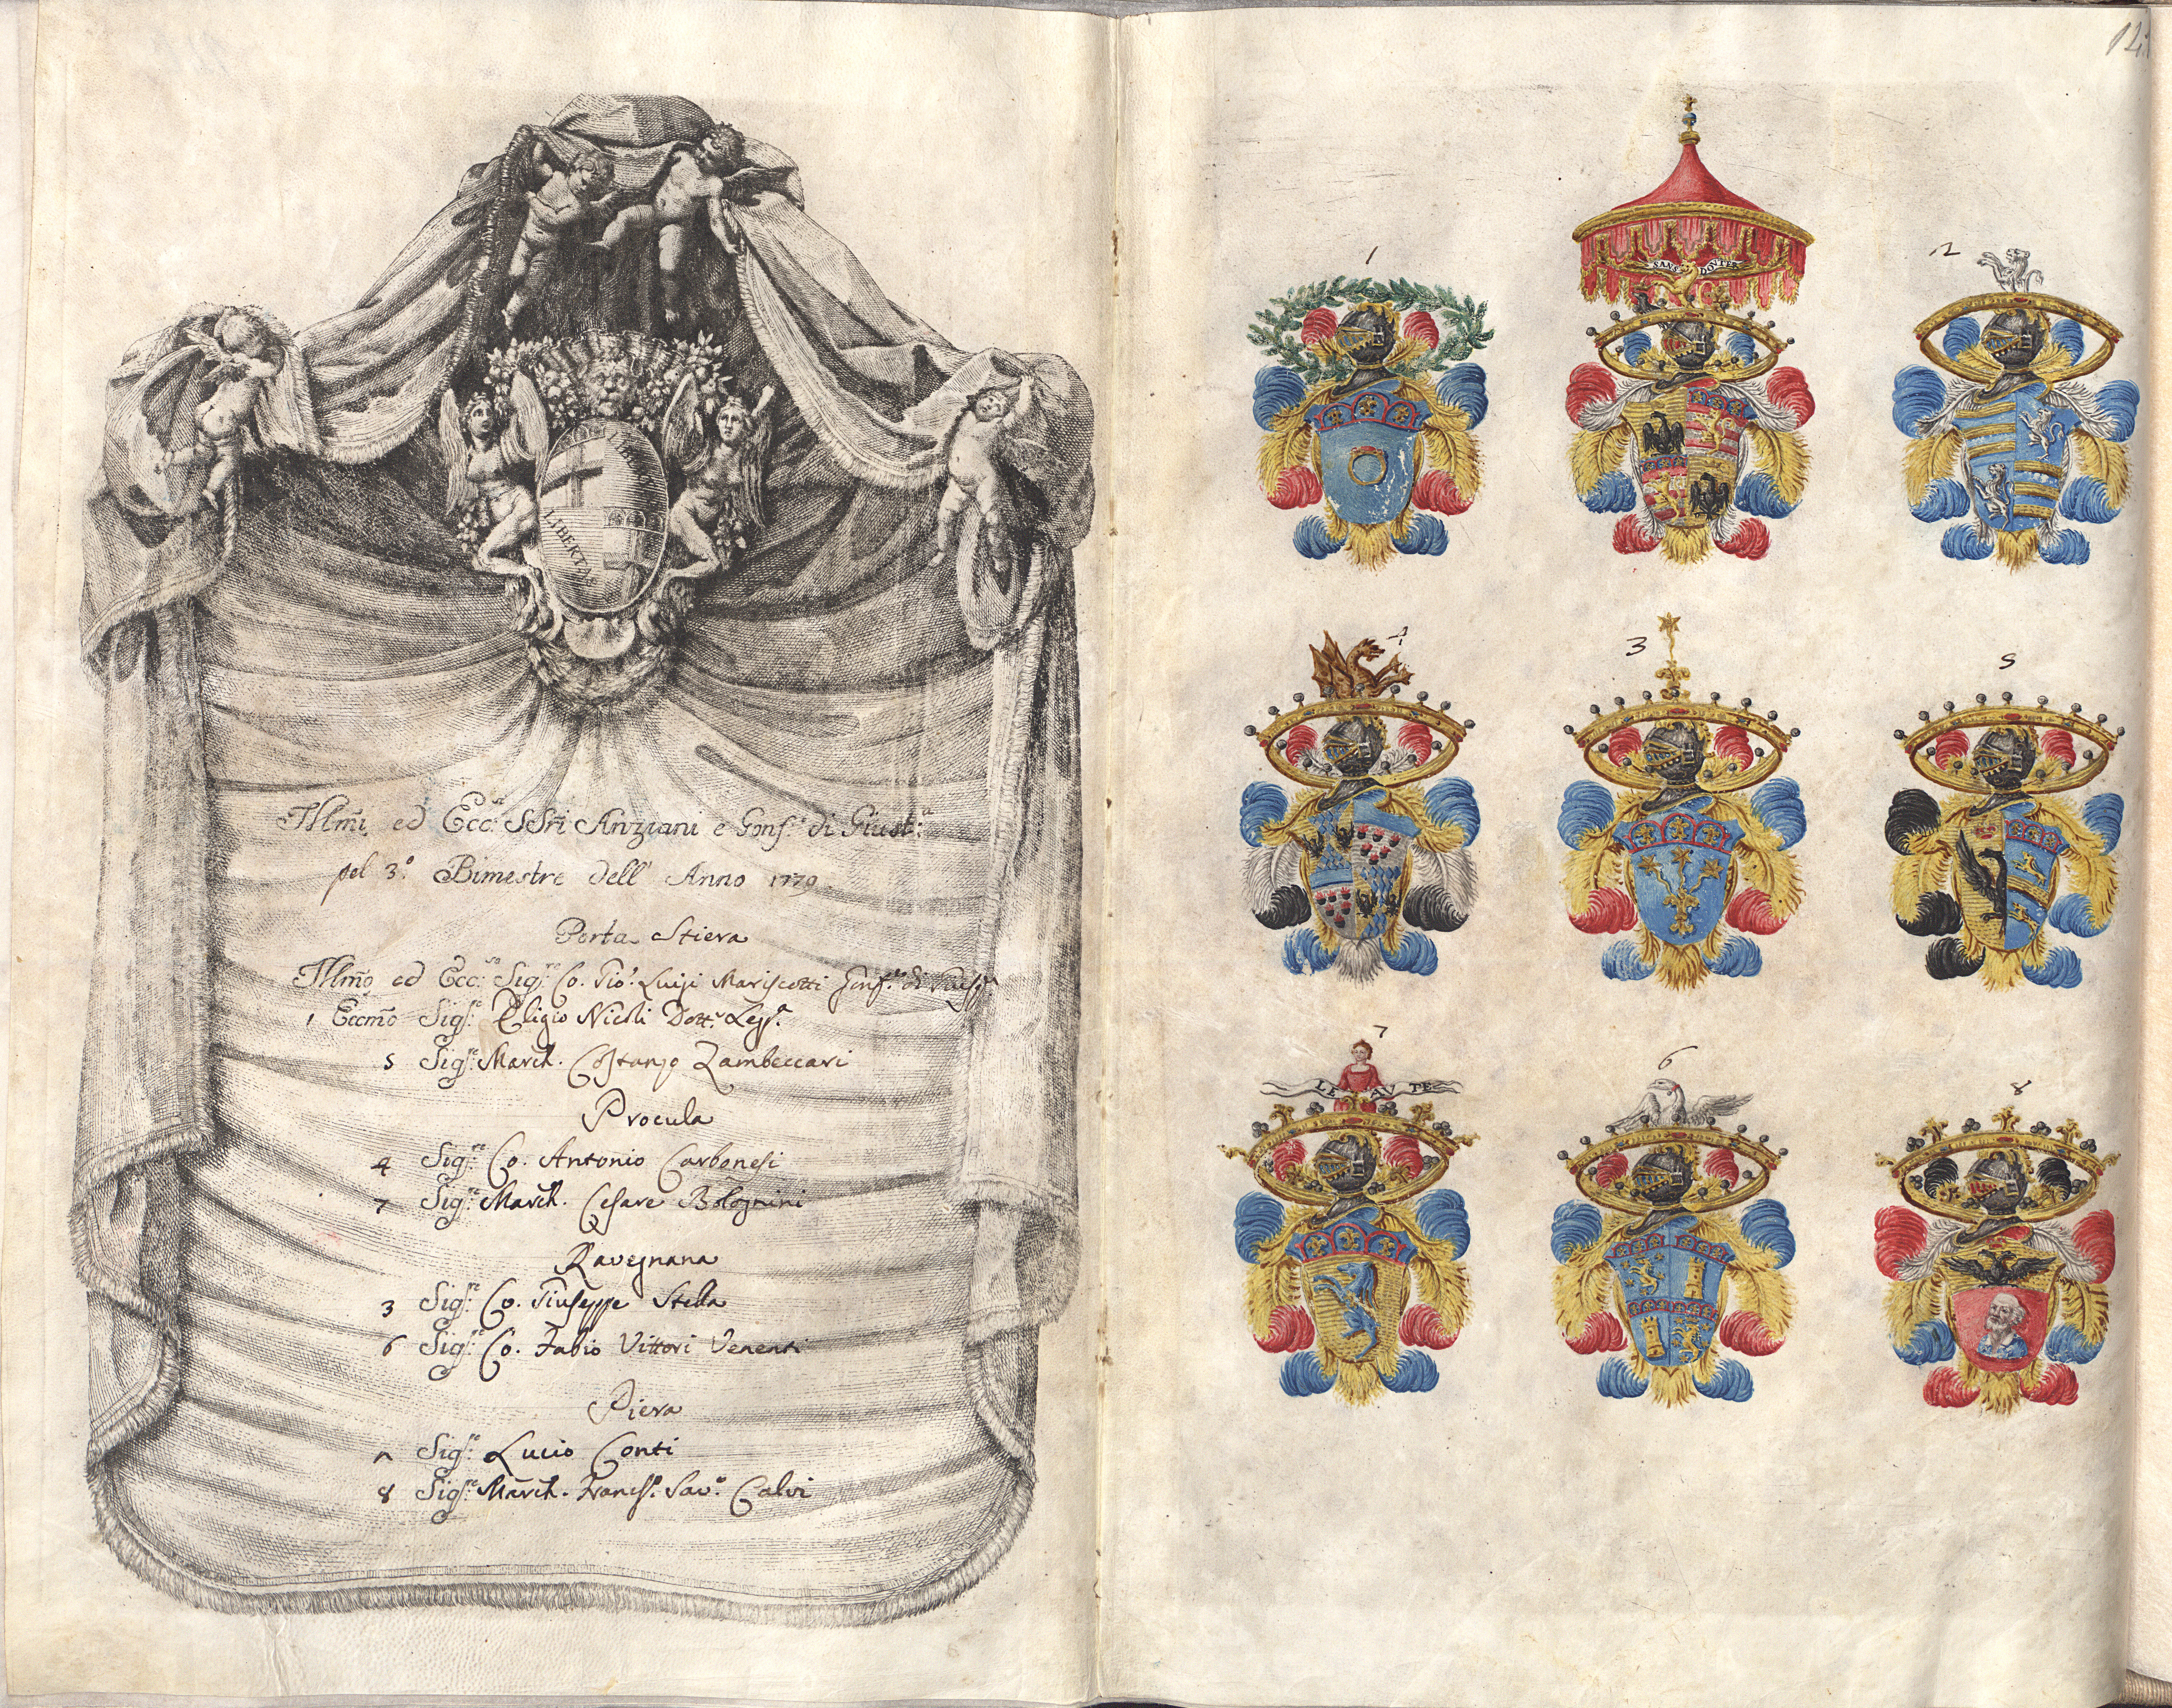 LIBERTAS
LIBERTAS
Illmi. ed Ecc: SSri Anziani e Gonf.e di Giust:a
pel 3.o Bimestre dell' Anno 1779
Porta Stiera
Illmo ed Ecc:mo Sig:re Co. Gio: Luigi Mariscotti Gonf.re di Giust.a
1 Eccmo Sig:re Eligio Nicoli Dott.r Leg.a
5 Sig:re March. Costanzo Zambeccari
Procula
4 Sig:re Co. Antonio Carbonesi
7 Sig:re March. Cesare Bolognini
Ravegnana
3 Sig:re Co. Giuseppe Stella
6 Sig:re Co. Fabio Vittori Venenti
Piera
2 Sig:re Lucio Conti
8 Sig:re March. Franc.o Sav.o Calvi
1
SANS DOVTER
2
4
3
5
7
LEAVTE
6
8